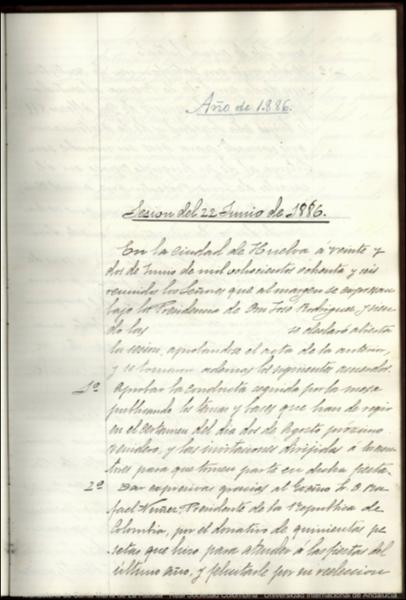 Año de 1.886.
Sesion del 22 Junio de 1886.
En la ciudad de Huelva á veinte y
dos de Junio de mil ochocientos ochenta y seis
reunidos los Señores que al margen se expresan
bajo la Presidencia de Don José Rodriguez y sien-
do las se declaró abierta
la sesion, aprobandose el acta de la anterior,
y se tomaron ademas los siguientes acuerdos.
1º Aprobar la conducta seguida por la mesa
publicando los temas y bases que han de regir
en el certamen del dia dos de Agosto próximo
venidero, y las invitaciones dirigidas á
para que tomen parte en dicha fiesta.
2º Dar expresivas gracias al Excmo S. D. Ra-
fael Nuñez, Presidente de la Republica de
Colombia, por el donativo de quinientas pe-
setas que hizo para atender á las fiestas del
último año, y felicitarle por su reeleccion
Universidad Internacional de Andalucía